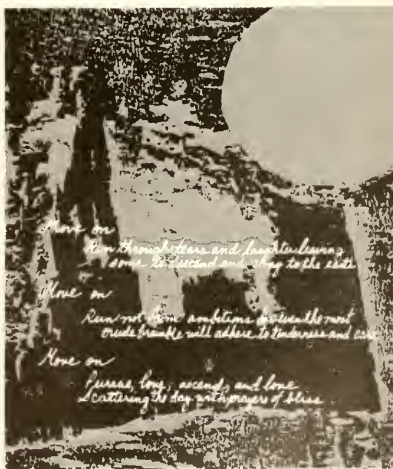 Move on
Run through tears and laughter leaving
some to descend and cling to the exits
Move on
Run not from ambitions for even the most
crude bramble will adhere to tenderness and care
Move on
Pursue, long, ascend, and love
Scattering the day with prayers of bliss